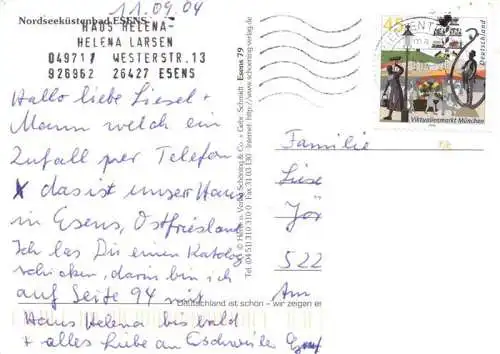 11.09.04
Nordseeküstenbad ESENS
HAUS HELENA-
HELENA LARSEN
049711 WESTERSTR.13
926962 26427 ESENS
Hallo liebe Liesel +
Mann welch ein
Zufall per Telefon
x das ist unser Haus
in Esens, Ostfriesland
Ich las Dir einen Katalog
schicken, darin bin ich
auf Seite 94 mit
Haus Helena bis bald
+ alles liebe an Eschweiler
Esens 79
Tel. (04 51) 310 310 0 Fax 31 03 130 Internet: http://www.schoening-verlag.de
Deutschland ist schön – wir zeigen es
45
Deutschland
Viktualienmarkt München
Familie
522
Am